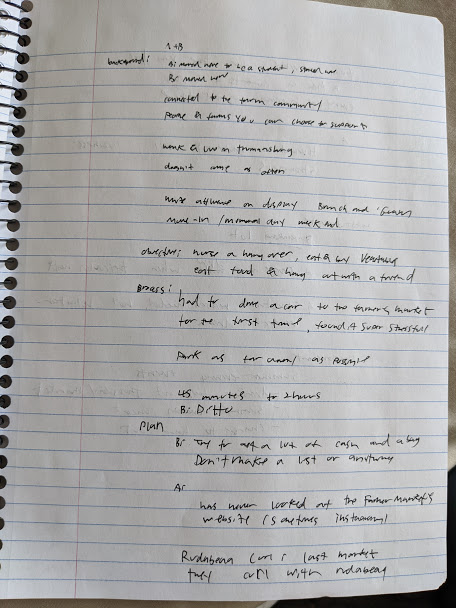 1 + B
background: A: moved here to be a student, stayed here
B: moved work
connected to the farm community
People & farms you can choose to support
work & live in
doesn't come as often
more artwork on display Branch and
Move-in / memorial day weekend
objectives: nurse a hangover, eat & buy vegetables
eat food & hang out with a friend
Process:
had to drive a car to the farmer's market
for the first time, found it super stressful
Park as far away as possible
45 minutes to 2 hours
B: Ditto
Plan
B: Try to get a lot of cash and a bag
Don't make a list or anything
A:
has never looked at the Farmer Market's
website (sometimes instagram)
Rudabega last market
with rudabeg